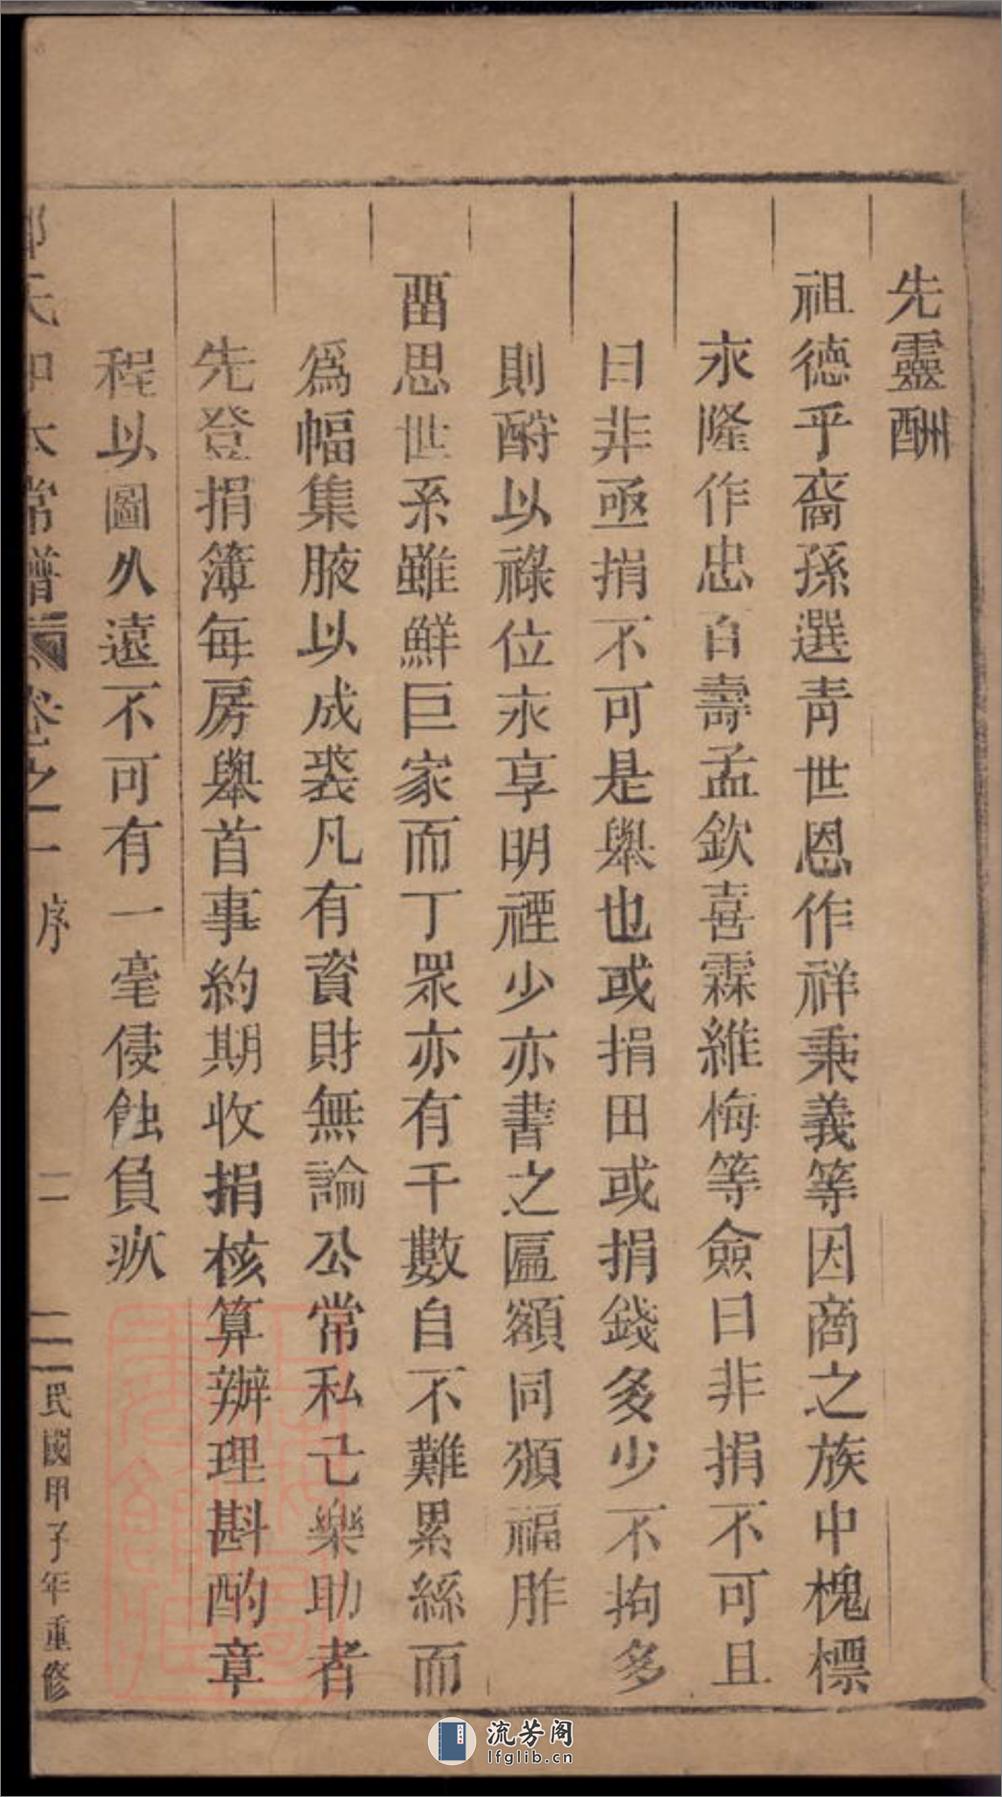 先靈酬
祖德乎裔孫選青世恩作祥秉義等因商之族中槐標
永隆作忠百壽孟欽喜霖維梅等僉曰非捐不可且
曰非亟捐不可是舉也或捐田或捐錢多少不拘多
則酧以祿位永享明禋少亦書之匾額同頒福胙
畱思世系雖鮮巨家而丁眾亦有千數自不難累絲而
為幅集腋以成裘凡有資財無論公常私己樂助者
先登捐簿每房舉首事約期收捐核算辦理斟酌章
程以圖久遠不可有一毫侵蝕負疚
氏 木常譜 卷之一 序 二 民國甲子年重修
流芳阁
lfglib.cn